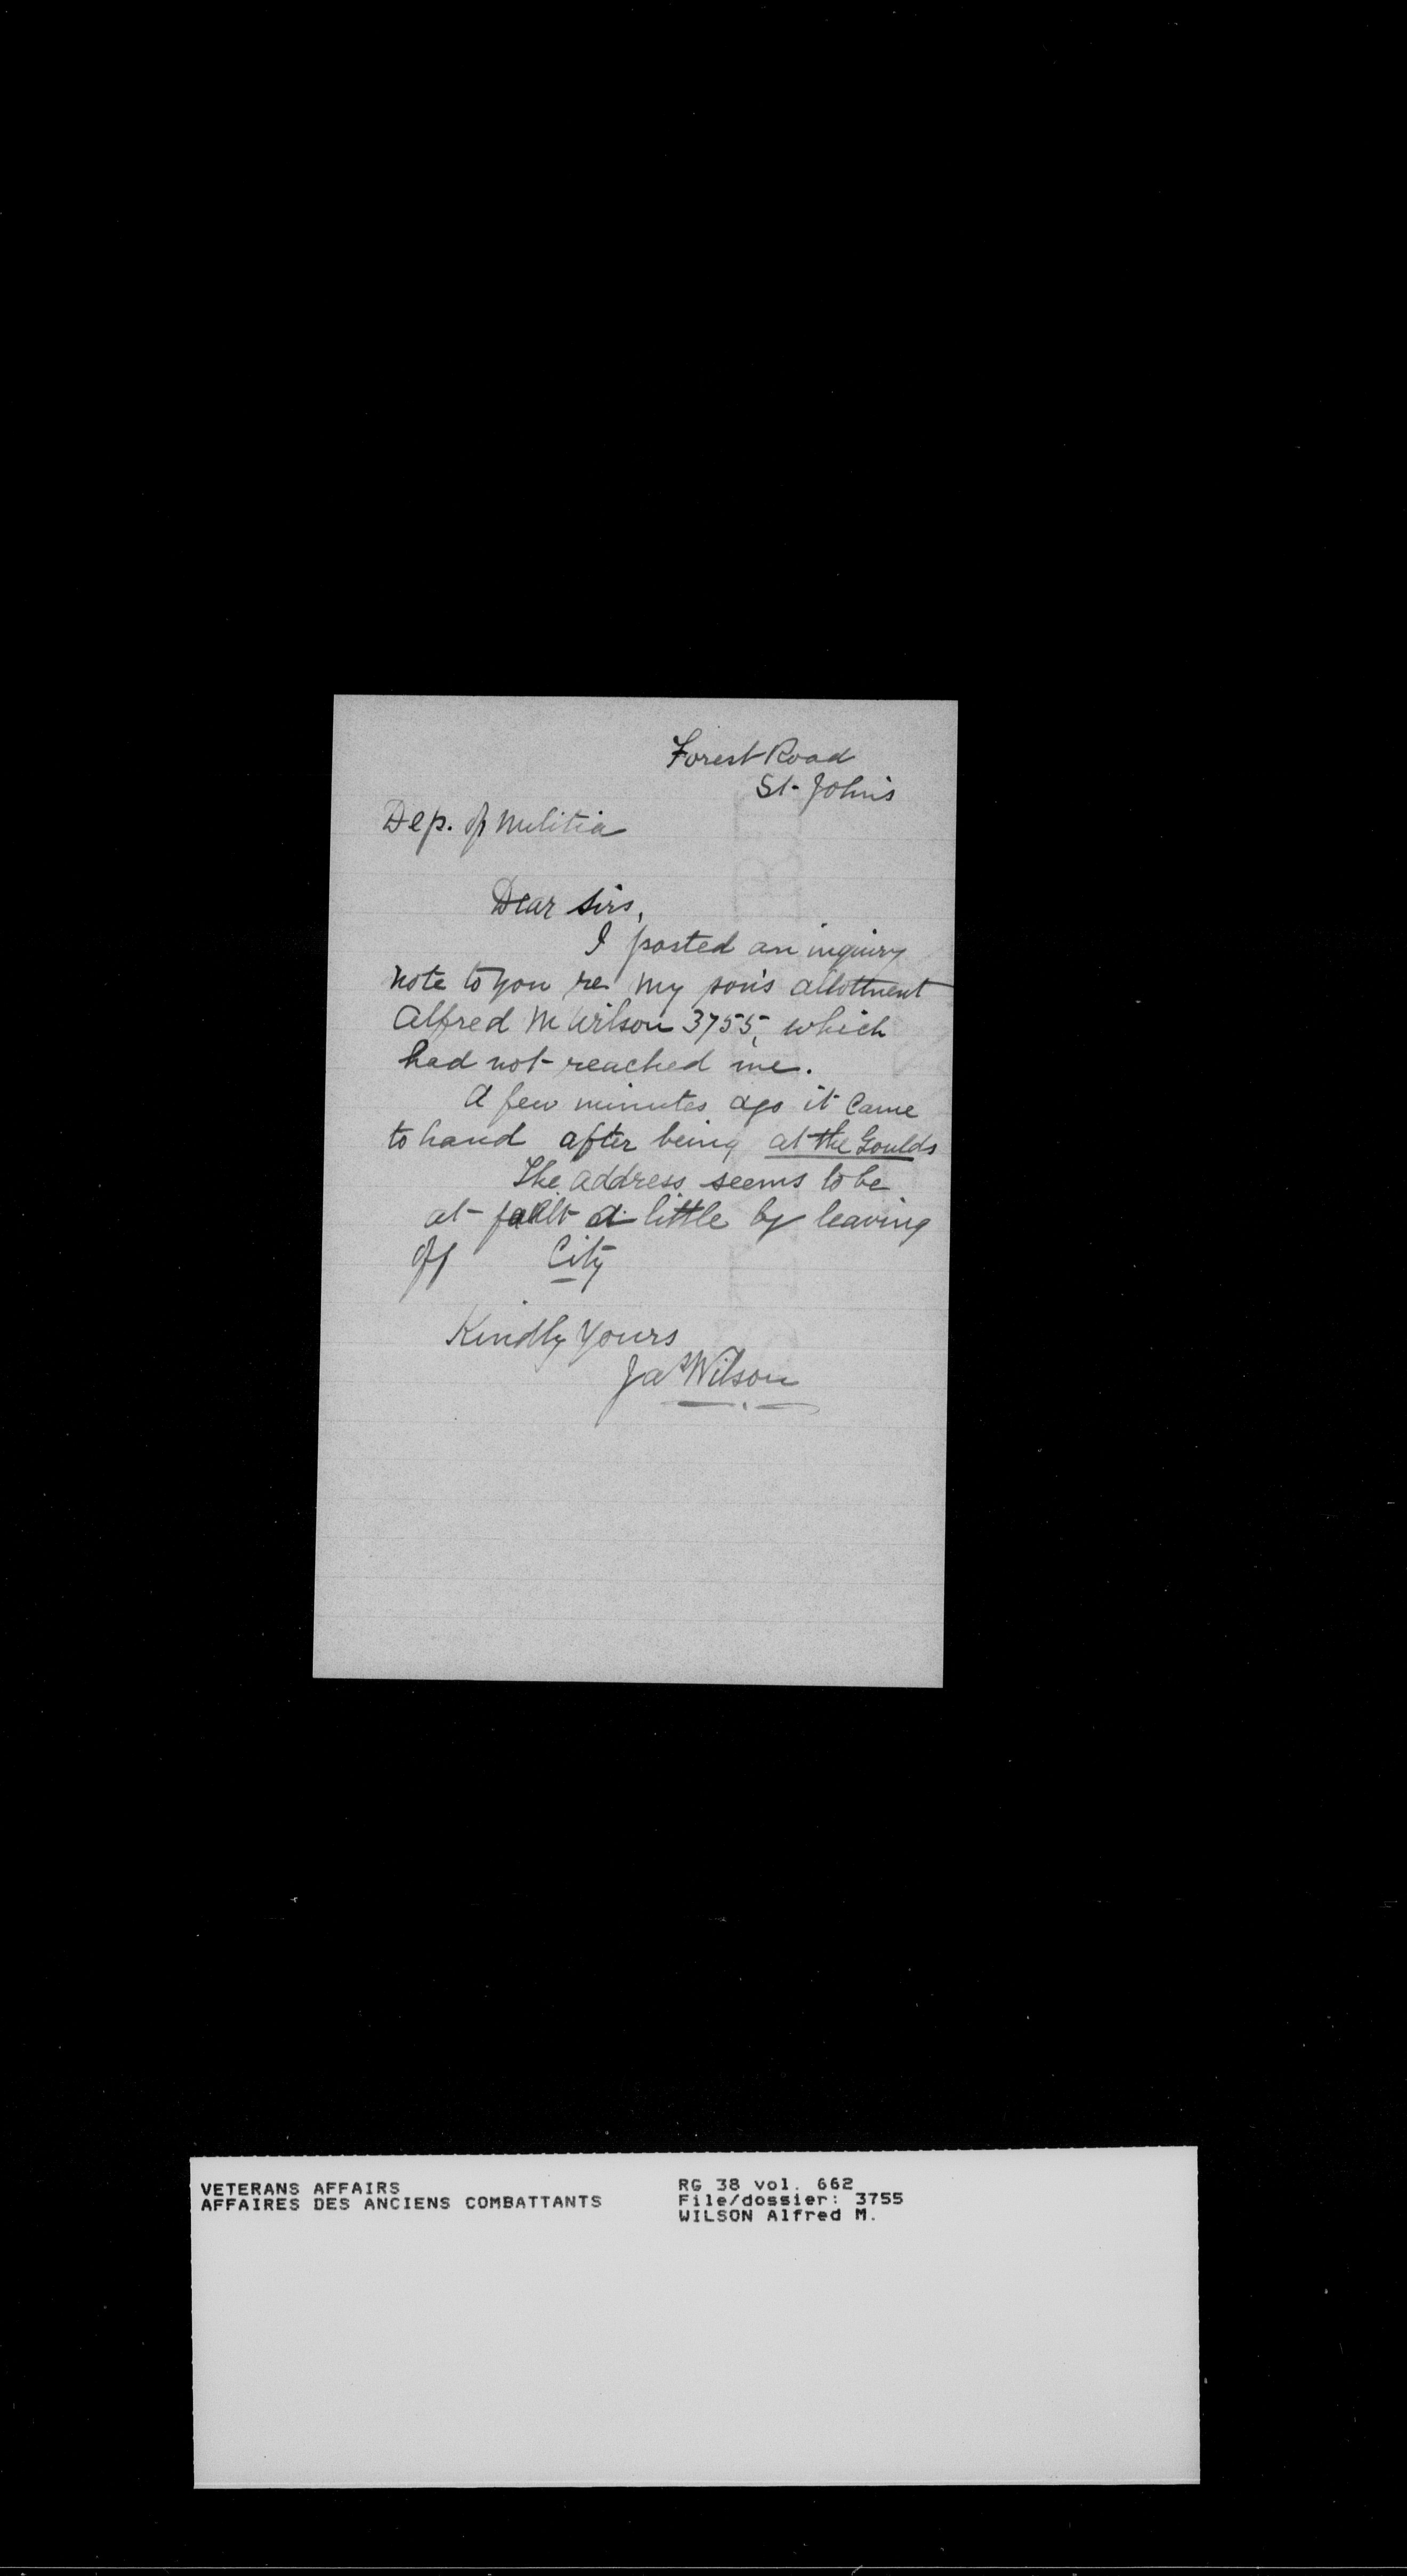 Forest Road
St. John's
Dep. of Militia
Dear Sirs,
I posted an inquiry
note to you re my son's allottment
Alfred M Wilson 3755, which
had not reached me.
A few minutes ago it came
to hand after being at the Goulds
The address seems to be
at fault a little by leaving
off City
Kindly Yours
Jas Wilson
VETERANS AFFAIRS
AFFAIRES DES ANCIENS COMBATTANTS
RG 38 vol. 662
File/dossier: 3755
WILSON Alfred M.